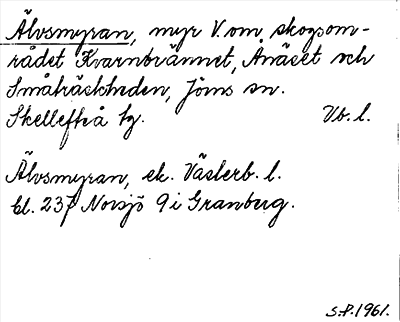 Älvsmyran, myr V. om skogsom-
rådet Kvarnbrännet, Ånäset och
Småträskheden, Jörns sn.
Skellefteå tg. Vb. l.
Älvsmyran, ek. Västerb. l.
bl. 237 Norsjö 9 i Granberg.
S.P. 1961.